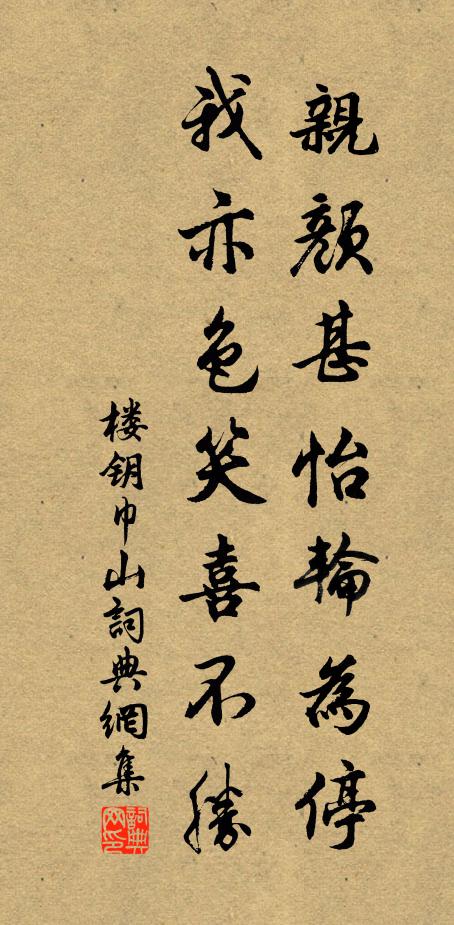 親顏甚怡輪為停
我亦色笑喜不勝
楼钥巾山詞典網集
詞典网印